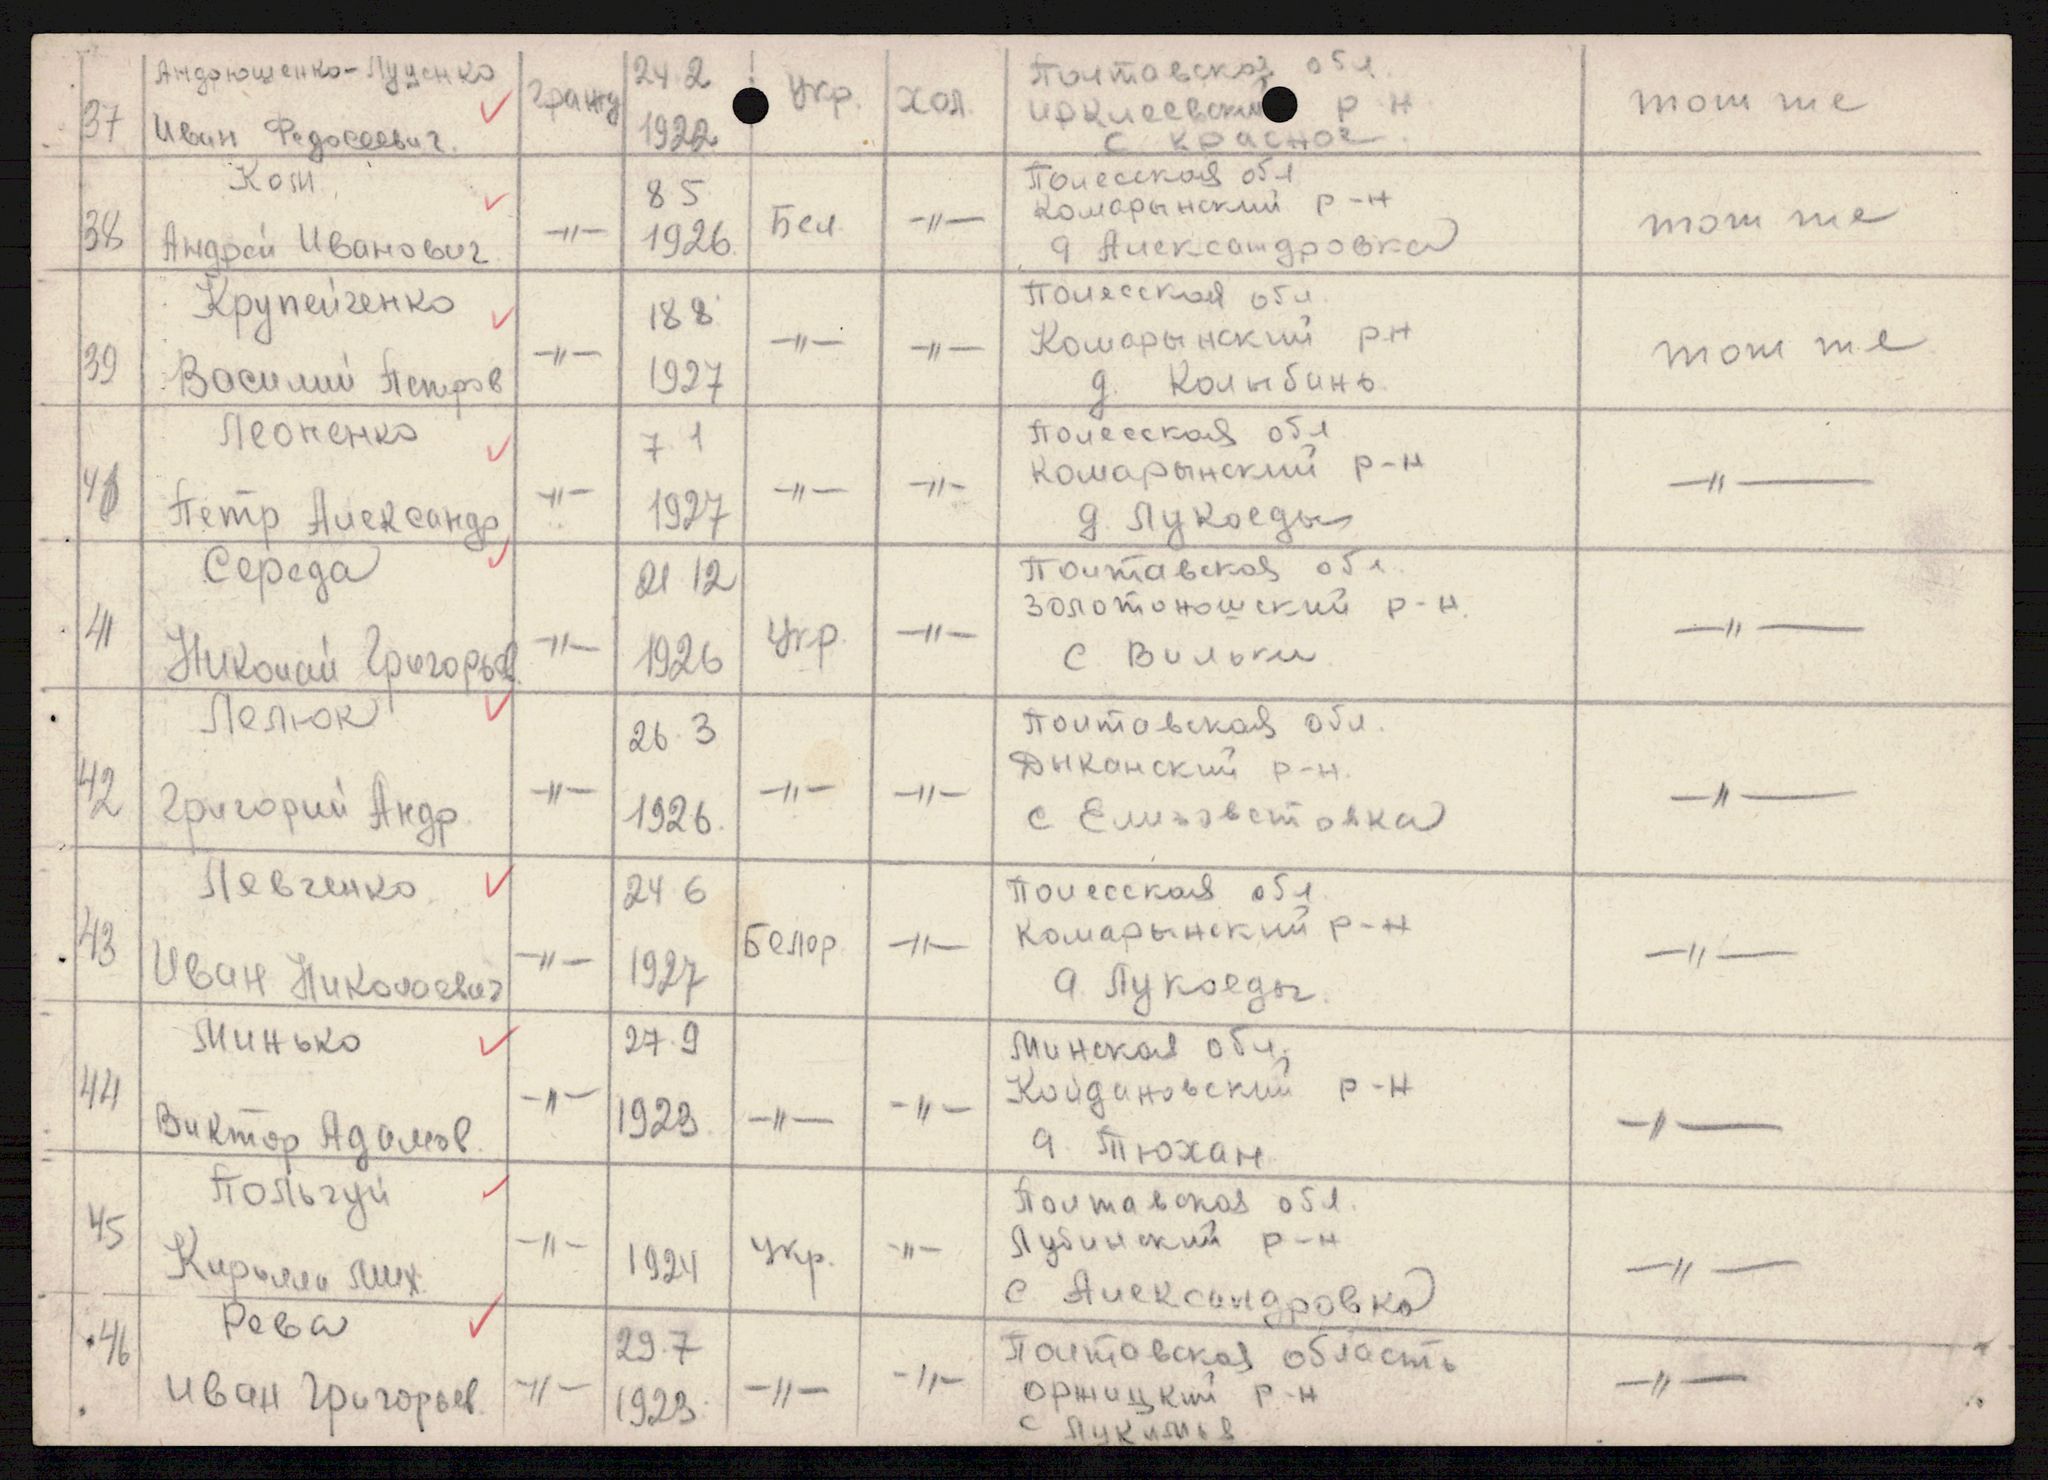 37 Андрюшенко-Луценко Иван Федосеевич. гражд 24.2 1922 Укр. хол. Полтавская обл. Ирклеевский р-н с Красное тот же
38 Кот Андрей Иванович -"- 8 5 1926. Бел. -"- Полесская обл Комарынский р-н д Александровка тот же
39 Крупейченко Василий Петров -"- 18 8 1927 -"- -"- Полесская обл. Комарынский р-н д. Колыбань тот же
40 Леоненко Петр Александр -"- 7 1 1927 -"- -"- Полесская обл Комарынский р-н д. Лукоеды -"-
41 Середа Николай Григорьев. -"- 21 12 1926 Укр. -"- Полтавская обл. Золотоношский р-н. с Вильки -"-
42 Лелюк Григорий Андр. -"- 26.3 1926. -"- -"- Полтавская обл. Дыканский р-н. с Елизаветовка -"-
43 Левченко Иван Николаевич -"- 24 6 1927 Белор. -"- Полесская обл. Комарынский р-н д Лукоеды. -"-
44 Минько Виктор Адамов. -"- 27.9 1923. -"- -"- Минская обл. Койдановский р-н д. Тюхан -"-
45 Польгуй Кирилл Мих. -"- 1924 Укр. -"- Полтавская обл. Лубинский р-н с Александровка -"-
46 Рева Иван Григорьев. -"- 29.7 1923. -"- -"- Полтавская область Оржицкий р-н с